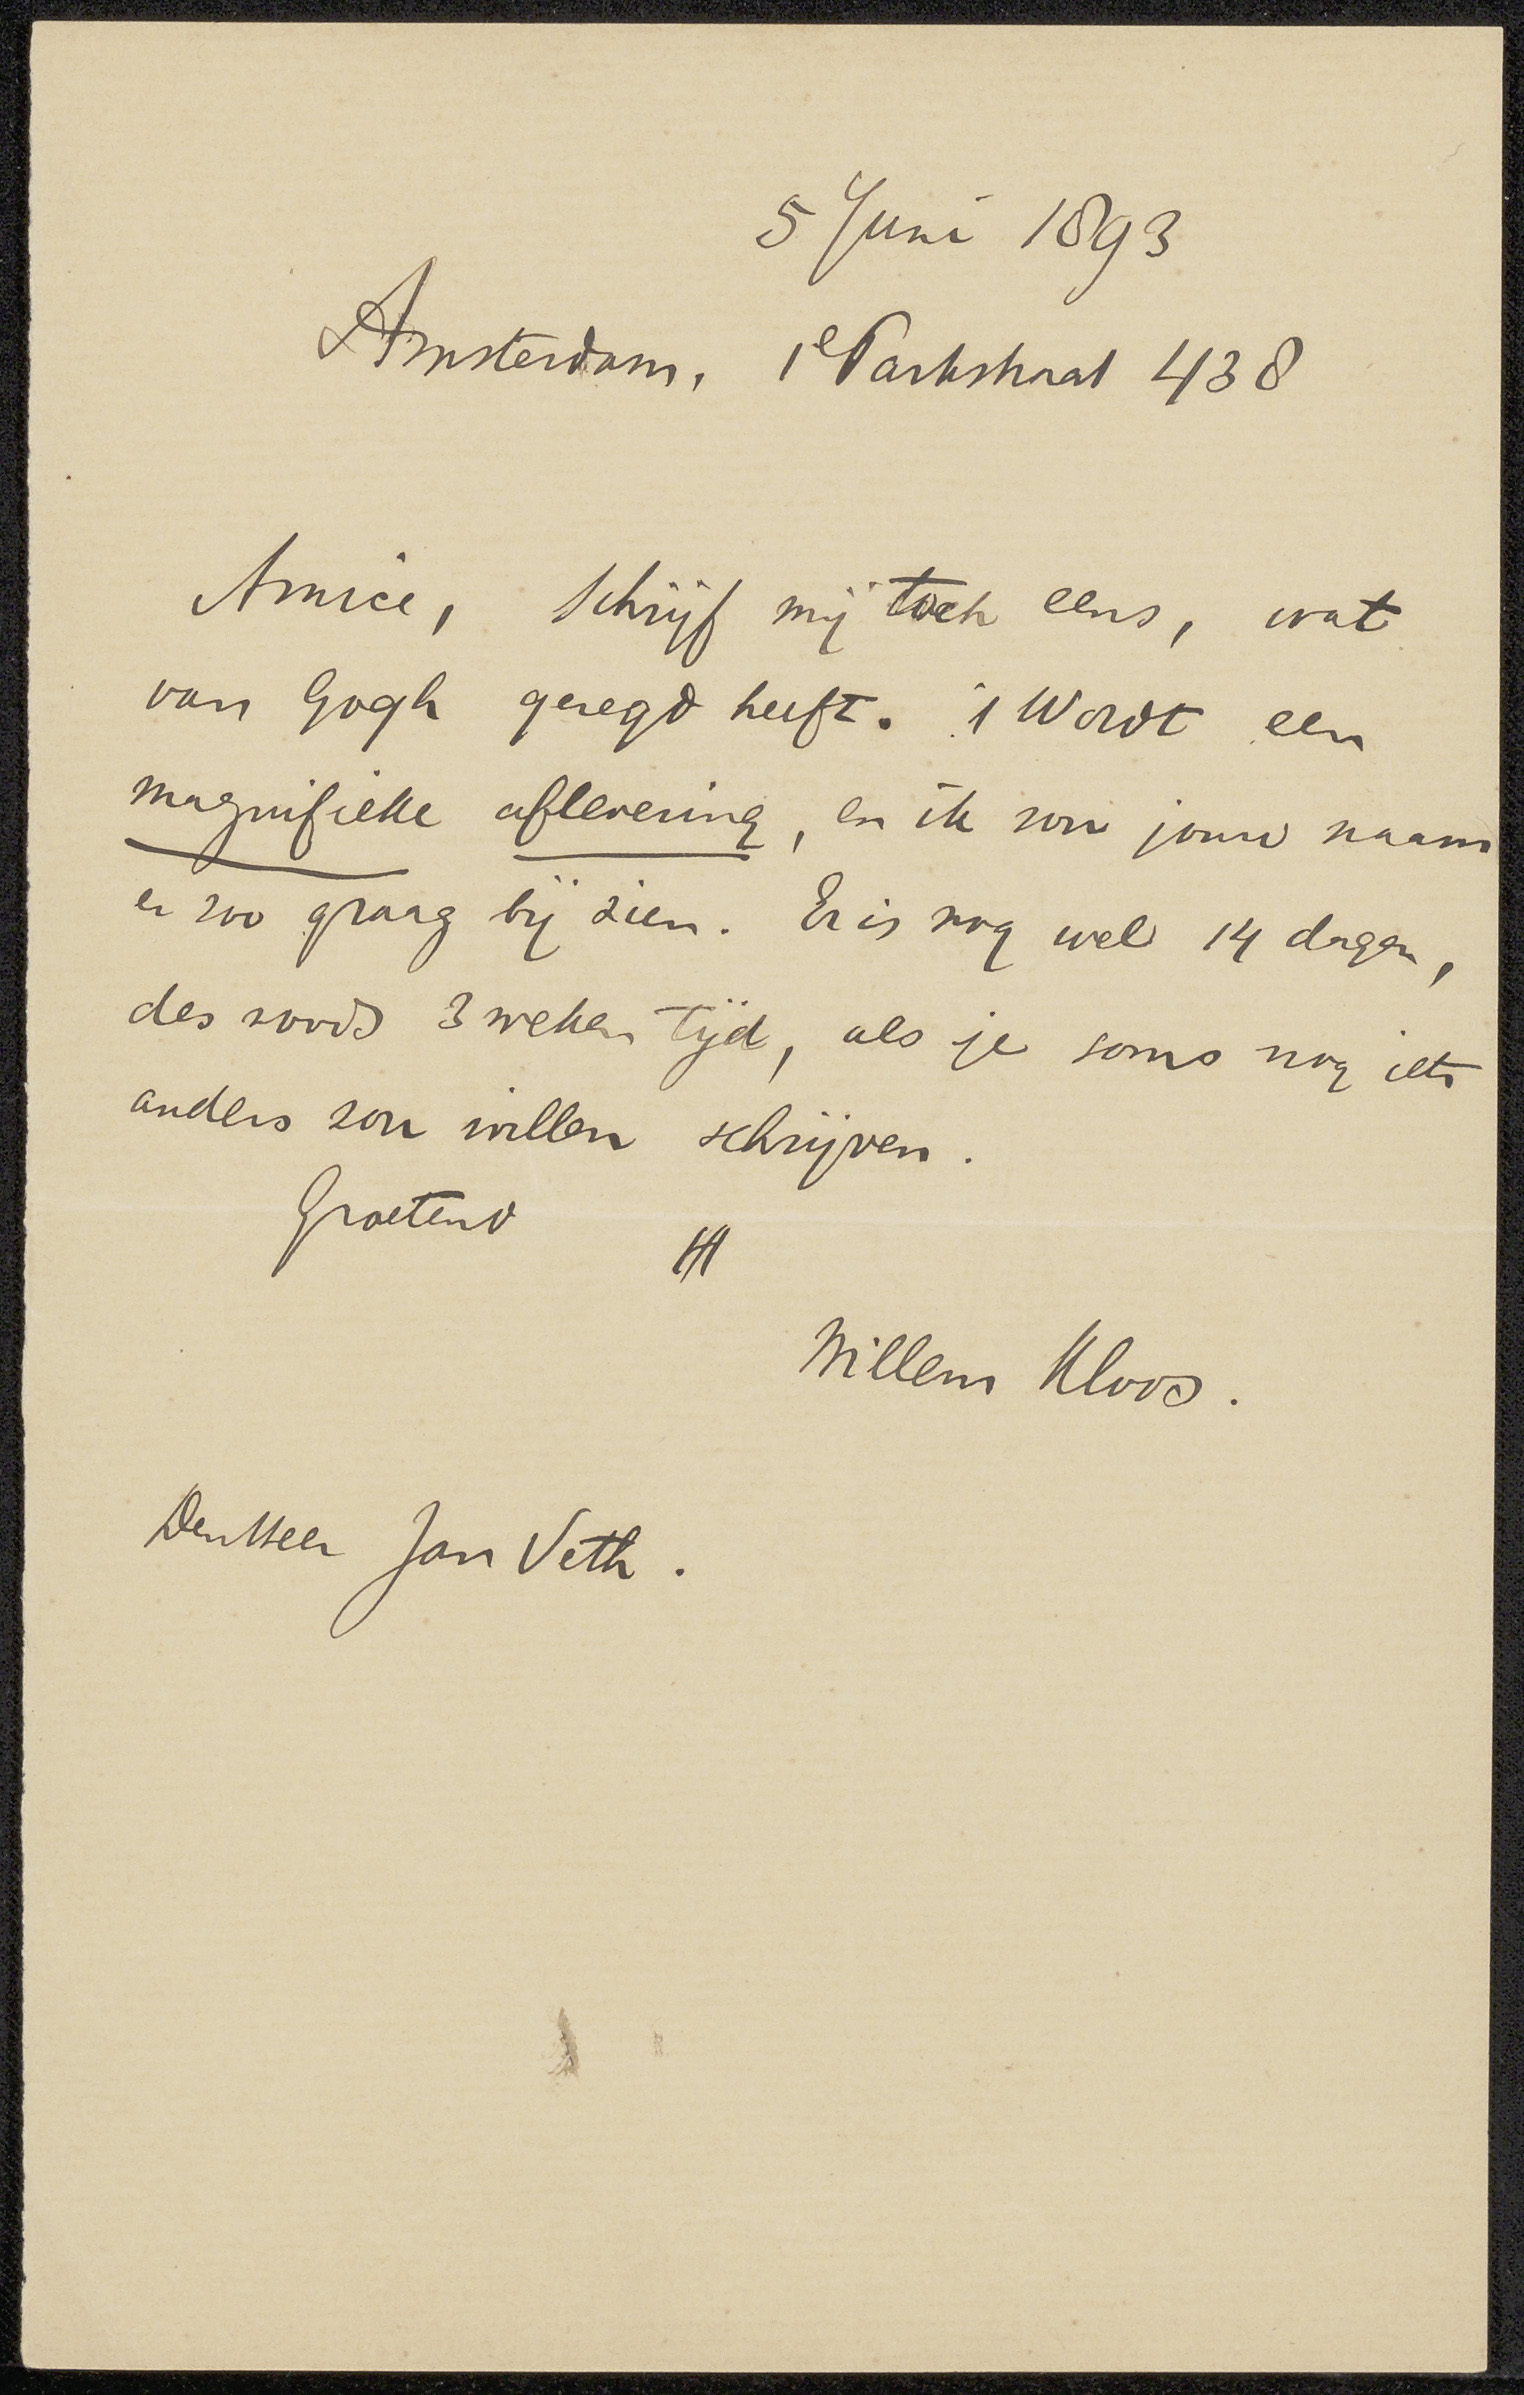 5 Juni 1893
Amsterdam, 1e Parkstraat 438
Amice, schrijf mij toch eens, wat
van Gogh gezegd heeft. 't Wordt een
magnifieke aflevering, en ik zou jouw naam
er zoo graag bij zien. Er is nog wel 14 dagen,
des noods 3 weken tijd, als je soms nog iets
anders zou willen schrijven.
Groetend
tt
Willem Kloos.
Den Heer Jan Veth.